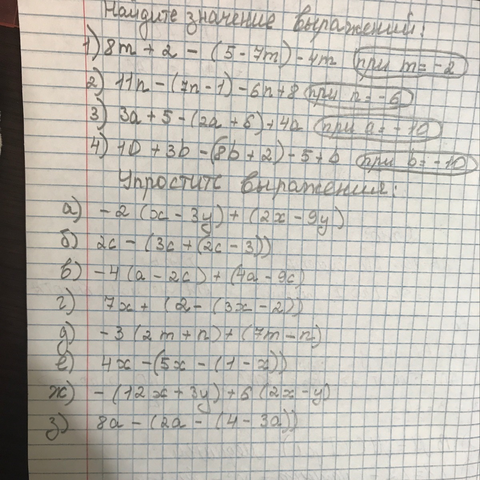 Найдите значение выражений:
1) 8m + 2 - (5 - 7m) - 4m (при m = -2)
2) 11n - (7n - 1) - 6n + 8 (при n = -6)
3) 3a + 5 - (2a + 6) + 4a (при a = -10)
4) 10 + 3b - (8b + 2) - 5 + b (при b = -10)
Упростите выражения:
а) -2 (x - 3y) + (2x - 9y)
б) 2c - (3c + (2c - 3))
в) -4 (a - 2c) + (4a - 9c)
г) 7x + (2 - (3x - 2))
д) -3 (2m + n) + (7m - n)
е) 4x - (5x - (1 - x))
ж) - (12x + 3y) + 6 (2x - y)
з) 8a - (2a - (4 - 3a))